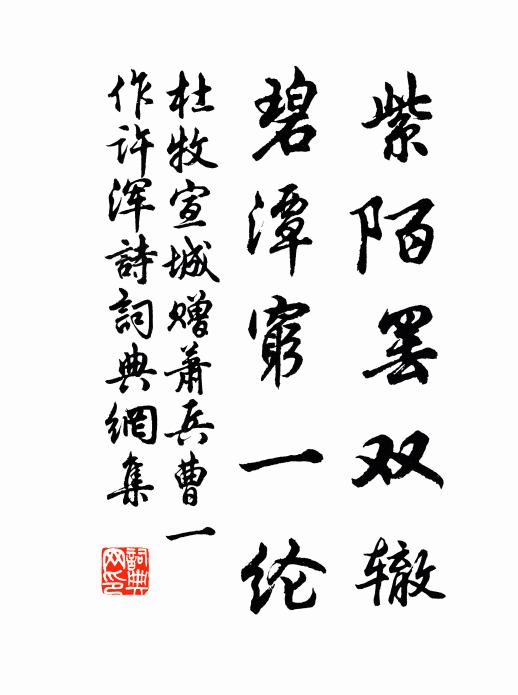 紫陌罢双辙
碧潭窮一纶
杜牧宣城赠萧兵曹一
作许浑詩詞典網集
詞典網印